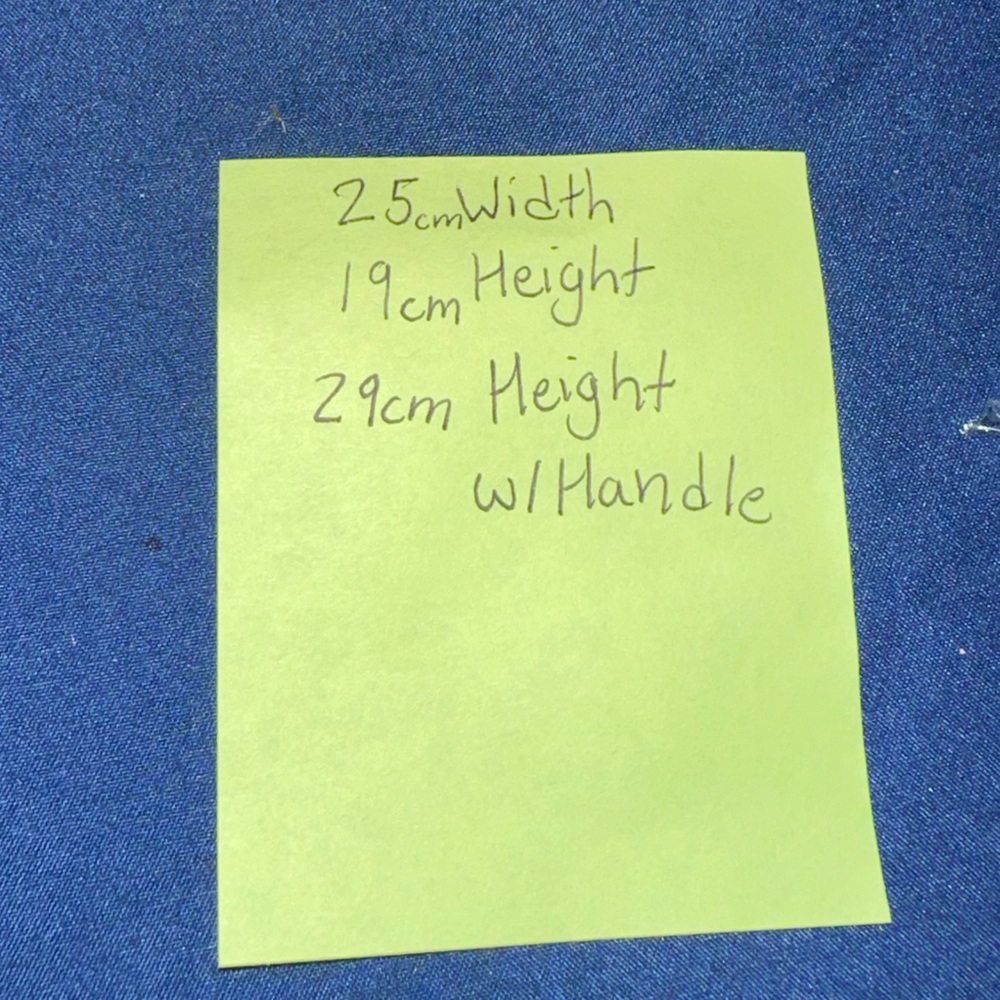 25cm Width
19cm Height
29cm Height
w/Handle